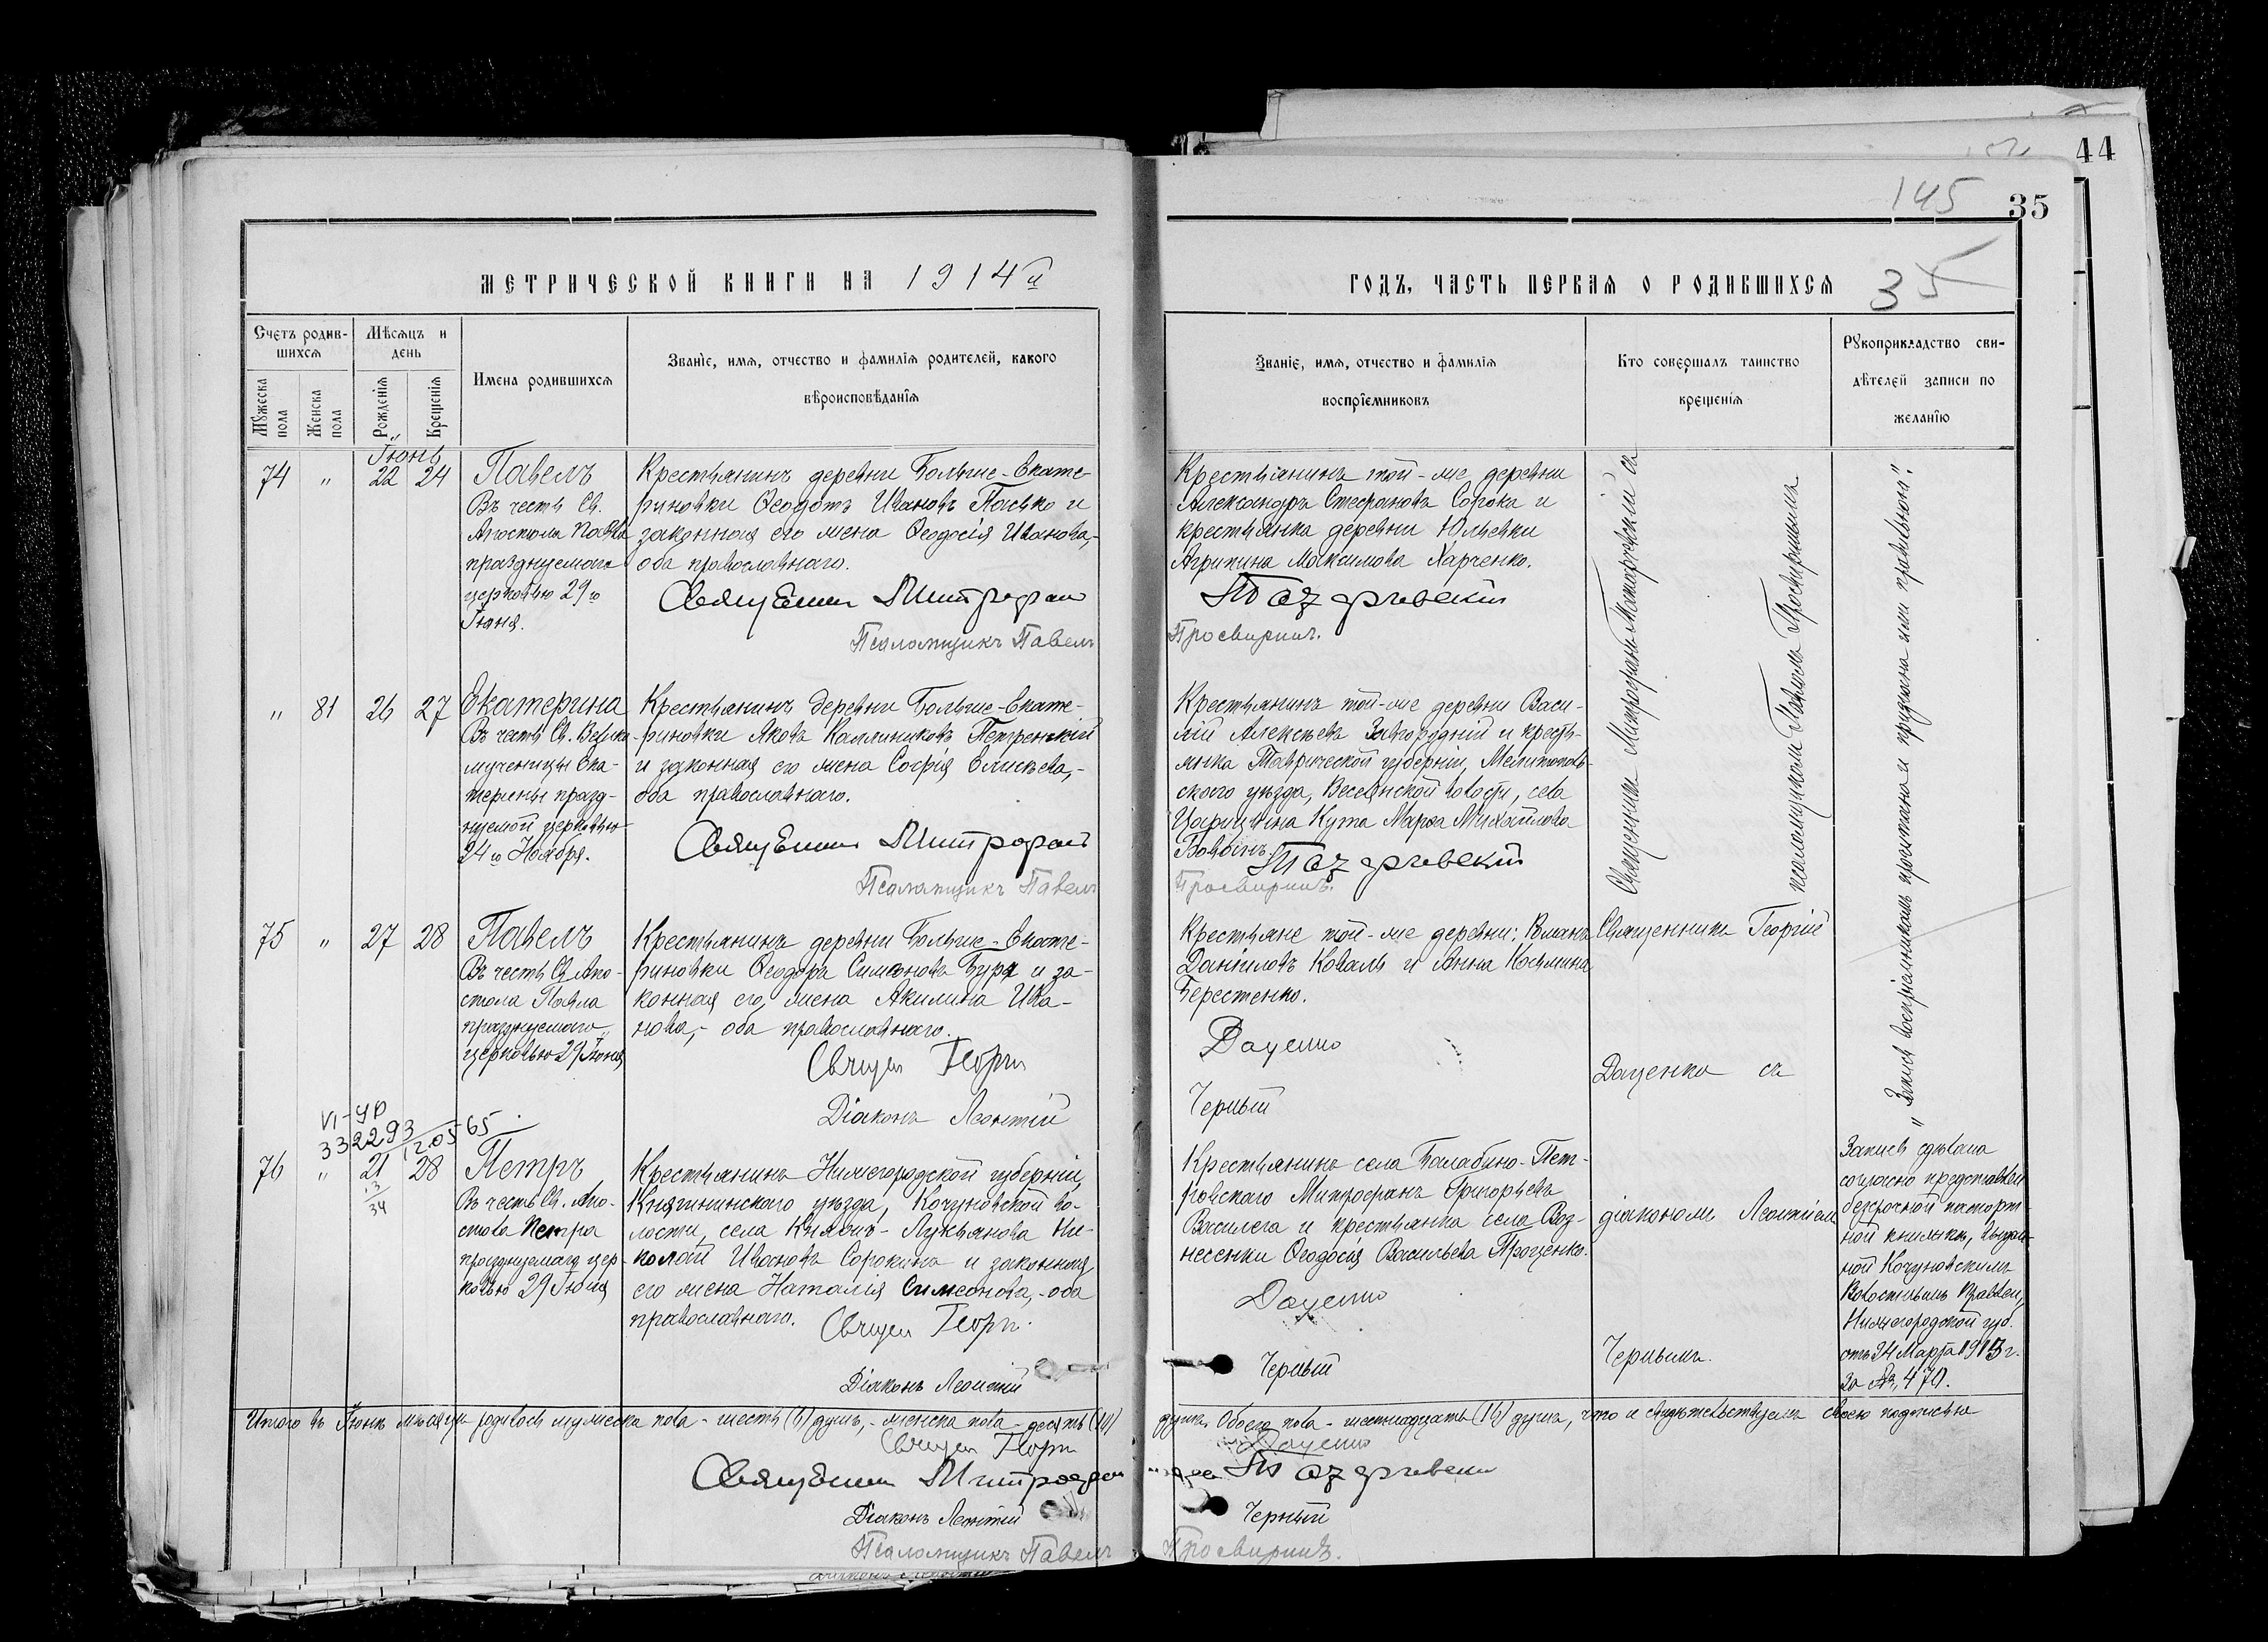 44
145
35
МЕТРИЧЕСКОЙ КНИГИ НА 1914й
ГОДЪ, ЧАСТЬ ПЕРВАЯ О РОДИВШИХСЯ
35
Счетъ родив-
шихся
Мужеска
пола
Женска
пола
Мѣсяцъ и
день
Рожденія
Крещенія
Имена родившихся
Званіе, имя, отчество и фамилія родителей, какого
вѣроисповѣданія
Званіе, имя, отчество и фамилія
воспріемниковъ
Кто совершалъ таинство
крещенія
Рукоприкладство сви-
дѣтелей записи по
желанію
Іюнь
74 " 22 24
Павелъ
Въ честь Св.
Апостола Павла
празднуемаго
церковью 29го
Іюня.
Крестьянинъ деревни Больше-Екате-
риновки Ѳеодотъ Ивановъ Пасько и
законная его жена Ѳеодосія Иванова,-
оба православнаго.
Священник Митрофан
Псаломщикъ Павелъ
Крестьянинъ той-же деревни
Александръ Стефановъ Сорока и
крестьянка деревни Юльевки
Агрипина Максимова Харченко.
Просвиринъ.
" 81 26 27
Екатерина
Въ честь Св. Велико-
мученицы Ека-
терины празд-
нуемой церковью
24го Ноября.
Крестьянинъ деревни Больше-Екате-
риновки Яковъ Каллиниковъ Петренькій
и законная его жена Софія Елисѣева,-
оба православнаго.
Священник Митрофан
Псаломщикъ Павелъ
Крестьянинъ той-же деревни Васи-
лій Алексѣевъ Завгородній и кресть-
янка Таврической губерніи, Мелитополь-
ского уѣзда, Веселянской волости, села
Царицына Кута Марѳа Михайлова
Просвиринъ.
Священникъ Митрофанъ съ
псаломщикомъ Павломъ Просвиринымъ
"Запись воспріемникамъ прочитана и признана ими правильною".
75 " 27 28
Павелъ
Въ честь Св. Апо-
стола Павла
празднуемаго
церковью 29 Іюня
Крестьянинъ деревни Больше-Екате-
риновки Ѳеодоръ Симеоновъ Бура и за-
конная его жена Акилина Ива-
нова,- оба православнаго.
Священ Георгій
Діаконъ Леонтій
Крестьяне той-же деревни: Романъ
Даніиловъ Коваль и Анна Косьмина
Берестенко.
Даценко
Черный
Священникъ Георгій
Даценко съ
VI-УР
332293
12.05 65
76 " 21 28
13
34
Петръ
Въ честь Св. Апо-
стола Петра
празднуемаго цер-
ковью 29 Іюня
Крестьянинъ Нижегородской губерніи,
Княгининского уѣзда, Кочуновской во-
лости, села Княжъ-Лукьянова Ни-
колай Ивановъ Сорокинъ и законная
его жена Наталія Симеонова,- оба
православнаго.
Священ Георгій
Діаконъ Леонтій
Крестьянинъ села Балабино-Пет-
ровского Митрофанъ Григорьевъ
Василега и крестьянка села Воз-
несенки Ѳеодосія Васильева Проценко.
Даценко
Черный
діакономъ Леонтіемъ
Чернымъ.
Запись сдѣлана
согласно представлен
безсрочной паспорт-
ной книжки, выдан-
ной Кочуновскимъ
Волостнымъ Правлен,
Нижегородской губ.
отъ 24 Марта 1913 г.
За №, 470.
Итого въ Іюнѣ мѣсяцѣ родилось мужеска пола - шесть (6) душъ, - женска пола - десять (10)
душъ. Обоего пола - шестнадцать (16) душъ, что и свидѣтельствуемъ своею подписью
Священ Георгій
Даценко
Священник Митрофан
Діаконъ Леонтій
Черный
Псаломщикъ Павелъ
Просвиринъ.